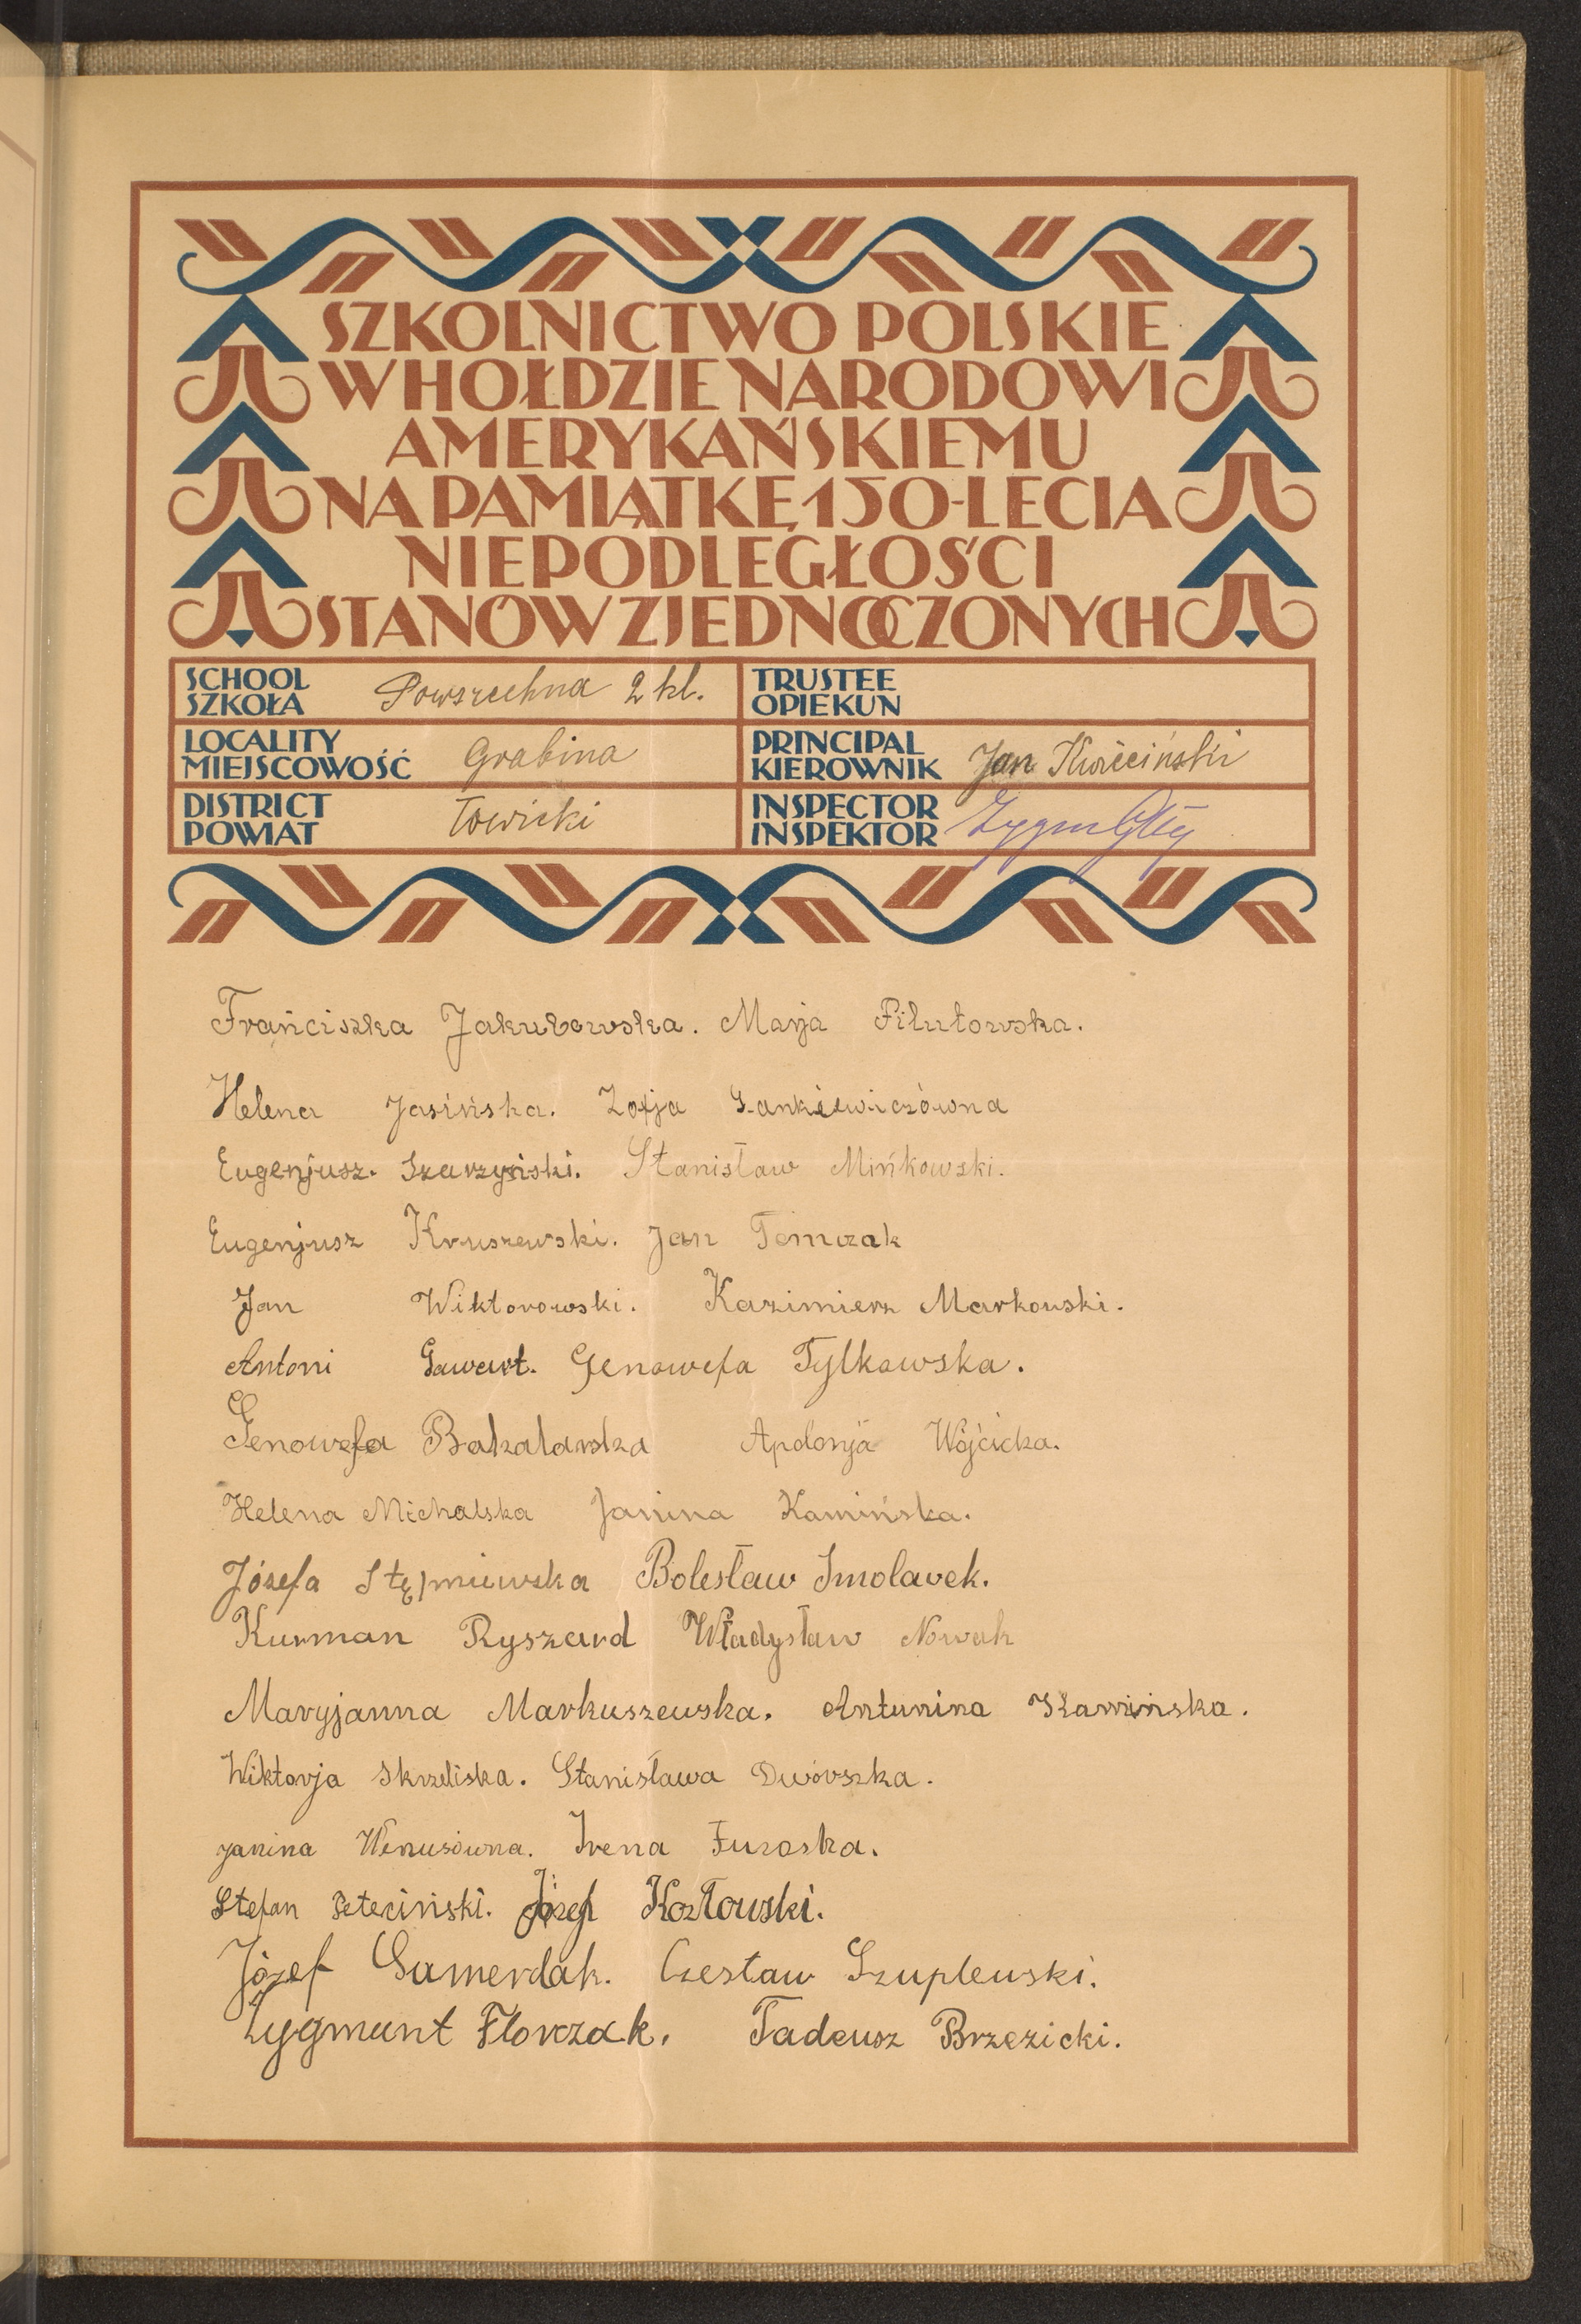 SZKOLNICTWO POLSKIE
W HOŁDZIE NARODOWI
AMERYKAŃSKIEMU
NA PAMIĄTKĘ 150-LECIA
NIEPODLEGŁOŚCI
STANÓW ZJEDNOCZONYCH
SCHOOL
SZKOŁA Powszechna 2 kl.
TRUSTEE
OPIEKUN
LOCALITY
MIEJSCOWOŚĆ Grabina
PRINCIPAL
KIEROWNIK Jan Kwieciński
DISTRICT
POWIAT Łowicki
INSPECTOR
INSPEKTOR
Franciszka Jakubowska. Marja Filutowska.
Helena Jasińska. Zofja Sankiewiczówna
Eugenjusz. Szarzyński. Stanisław Mińkowski.
Eugenjusz Kruszewski. Jan Tomczak
Jan Wiktorowski. Kazimierz Markowski.
Antoni Gawart. Genowefa Tylkowska.
Genowefa Bakalarska Apolonja Wójcicka.
Helena Michalska Janina Kamińska.
Józefa Stępniewska Bolesław Smolarek.
Kurman Ryszard Władysław Nowak
Maryjanna Markuszewska. Antunina Kamińska.
Wiktorja Skrzeliska. Stanisława Dwórszka.
Janina Wenusówna. Irena Furoska.
Stefan Peteciński. Józef Kozłowski.
Józef Gamerdak. Czesław Szuplewski.
Zygmunt Florczak. Tadeusz Brzezicki.